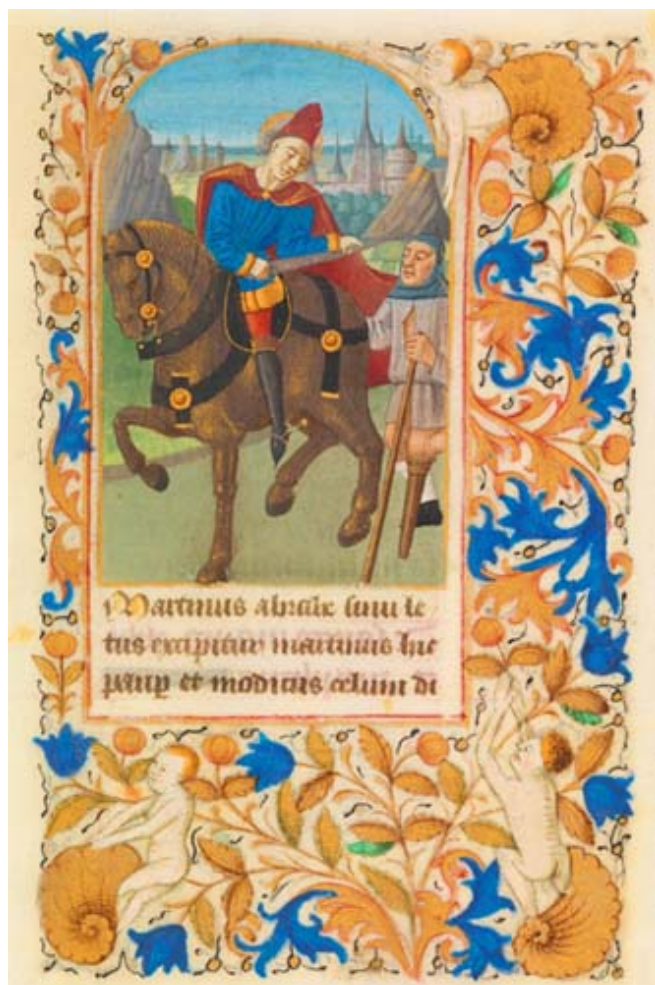 Martinus abrahe sinu le
tus excipitur martinus hic
pauꝑ et modicus celum di